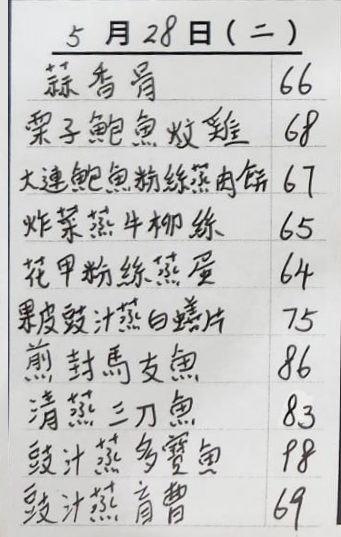 5月28日(二)
蒜香骨 66
栗子鮑魚炆雞 68
大連鮑魚粉絲蒸肉餅 67
炸菜蒸牛柳絲 65
花甲粉絲蒸蛋 64
果皮豉汁蒸白鱔片 75
煎封馬友魚 86
清蒸三刀魚 83
豉汁蒸多寶魚 98
豉汁蒸育曹 69